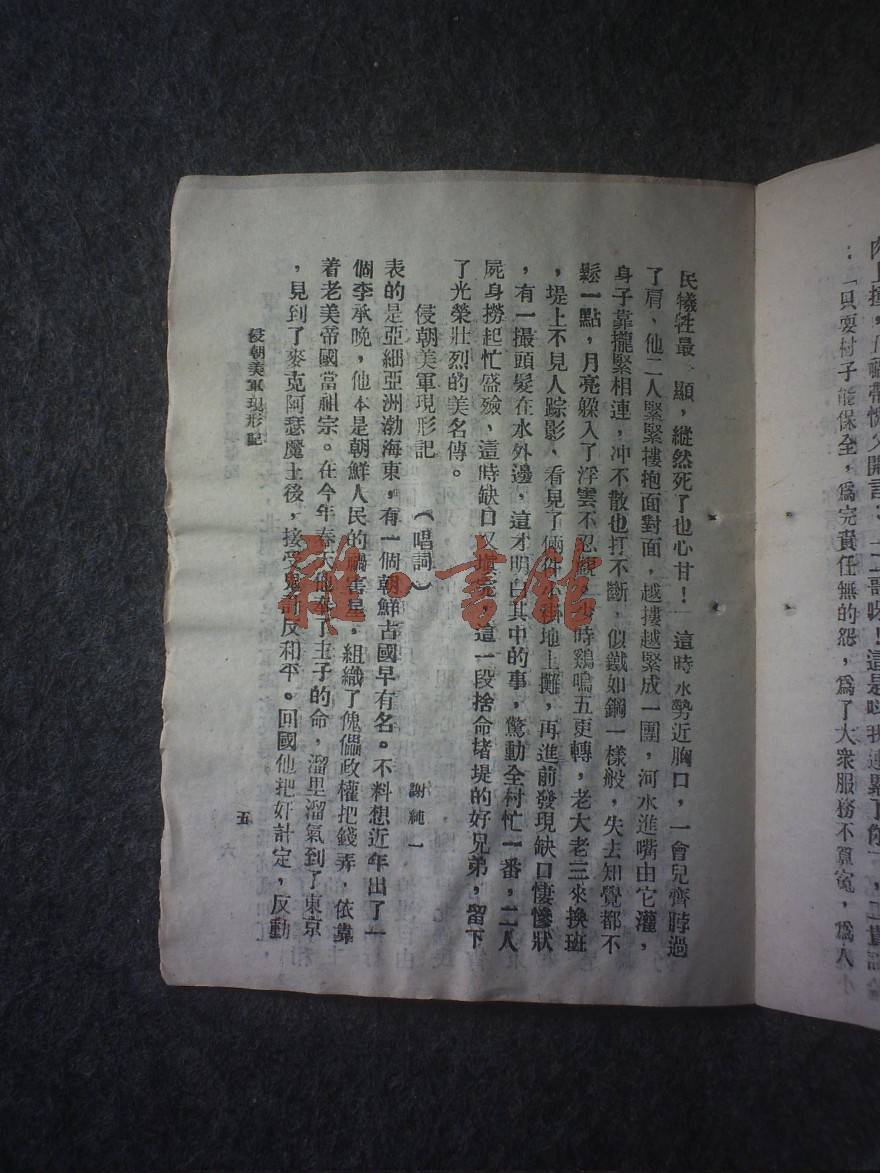 ：「只要村子能保全，爲完責任無的怨，爲了大衆服務不算寃，爲人
民犧牲最 顯，縱然死了也心甘！ 這時水勢近胸口，一會兒齊脖過
了肩、他二人緊緊摟抱面對面，越摟越緊成一團，河水進嘴由它灌，
身子靠攏緊相連，冲不散也打不斷，似鐵如鋼一樣般，失去知覺都不
鬆一點，月亮躱入了浮雲不忍觀，時鷄鳴五更轉，老大老三來換班
，堤上不見人踪影、看見了倆件 地上攤，再進前發現缺口悽慘狀
，有一撮頭髮在水外邊，這才明白其中的事，驚動全村忙一番，二人
屍身撈起忙盛殮，這時缺口又 ，這一段捨命堵堤的好兄弟，留下
了光榮壯烈的美名傳。
侵朝美軍現形記 （唱詞） 謝純一
表的是亞細亞洲渤海東，有一個朝鮮古國早有名。不料想近年出了一
個李承晚，他本是朝鮮人民的禍害星，組織了傀儡政權把錢弄，依靠
着老美帝國當祖宗。在今年春天他奉了主子的命，溜里溜氣到了東京
，見到了麥克阿瑟魔王後，接受鬼計反和平。回國他把奸計定，反動
侵朝美軍現形記
五
雜書館